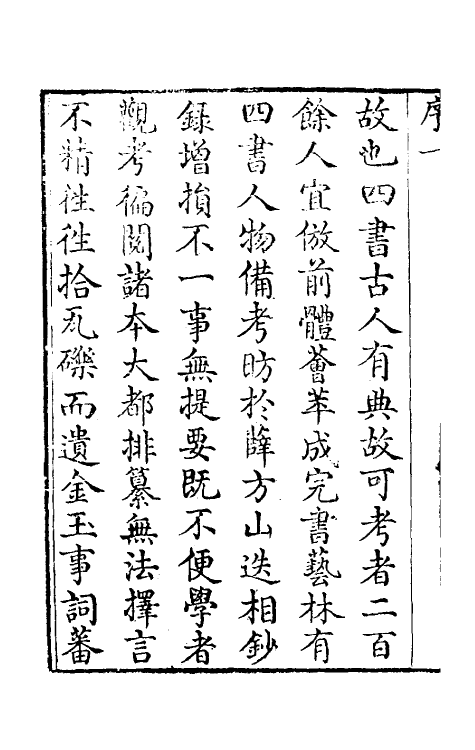 序一
故也四書古人有典故可考者二百
餘人宜倣前體薈萃成完書藝林有
四書人物備考昉於薛方山迭相鈔
錄增損不一事無提要既不便學者
觀考徧閱諸本大都排纂無法擇言
不精徃徃拾瓦礫而遺金玉事詞蕃